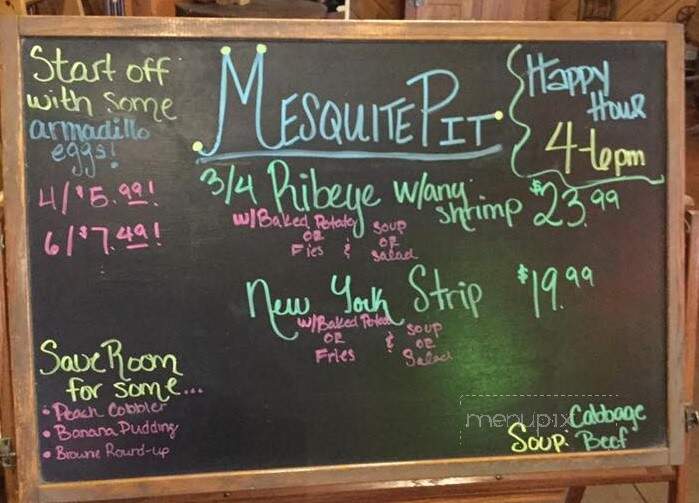 Start off
with some
armadillo
eggs!
4/$5.99!
6/$7.49!
MESQUITE PIT
HAPPY
HOUR
4-6pm
3/4 Ribeye w/any
shrimp $23.99
w/Baked Potato
OR
Fries & Soup
OR
Salad
New York Strip $19.99
w/Baked Potato
OR
Fries & Soup
OR
Salad
Save Room
for some...
• Peach Cobbler
• Banana Pudding
• Brownie Round-up
menupix
Soup: Cabbage
Beef